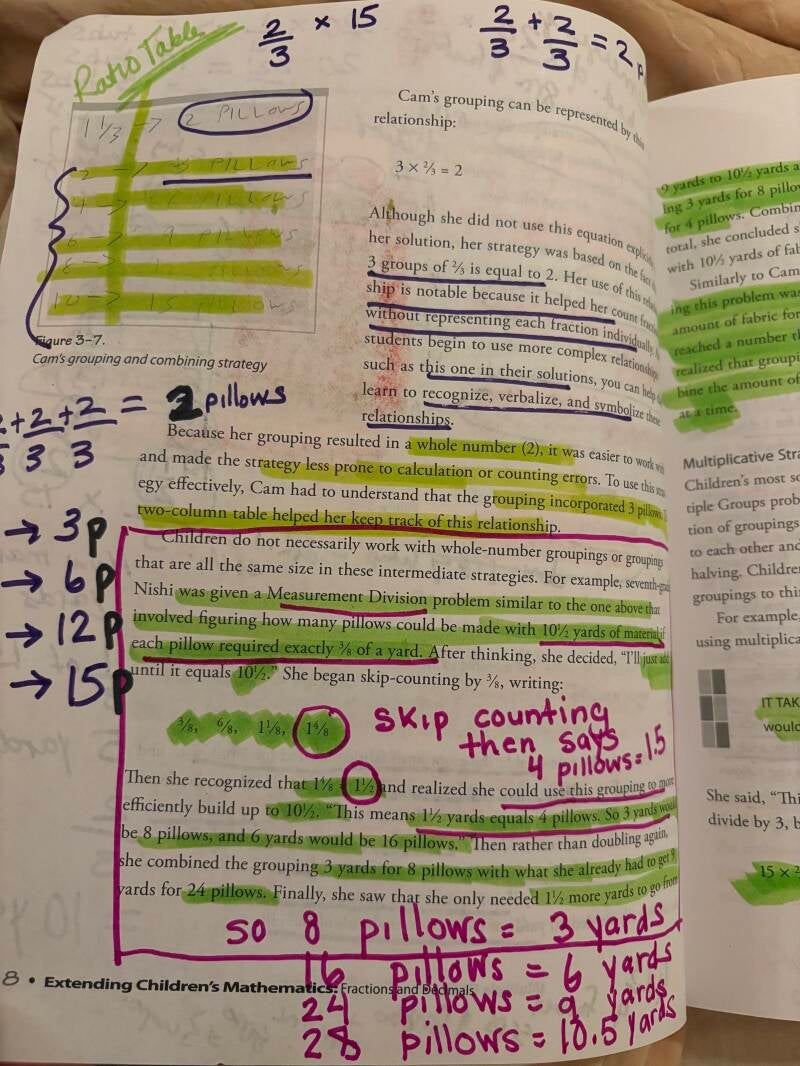 Ratio Table
2/3 × 15
2/3 + 2/3 = 2 p
1 1/3 → 2 PILLOWS
2 → 3 PILLOWS
4 → PILLOWS
6 → 9 PILLOWS
PILLOWS
10 → 15 PILLOWS
Figure 3–7.
Cam's grouping and combining strategy
Cam's grouping can be represented by this
relationship:
3 × ⅔ = 2
Although she did not use this equation
her solution, her strategy was based on the
3 groups of ⅔ is equal to 2. Her use of this
ship is notable because it helped her count
without representing each fraction individually.
students begin to use more complex relationships
such as this one in their solutions, you can help
learn to recognize, verbalize, and symbolize these
relationships.
+ 2/3 + 2/3 = 2 pillows
→ 3p
→ 6p
→ 12p
→ 15p
Because her grouping resulted in a whole number (2), it was easier to work with
and made the strategy less prone to calculation or counting errors. To use this
egy effectively, Cam had to understand that the grouping incorporated 3 pillows.
two-column table helped her keep track of this relationship.
Children do not necessarily work with whole-number groupings or groupings
that are all the same size in these intermediate strategies. For example,
Nishi was given a Measurement Division problem similar to the one above that
involved figuring how many pillows could be made with 10½ yards of material if
each pillow required exactly ⅜ of a yard. After thinking, she decided, "I'll just add
until it equals 10½." She began skip-counting by ⅜, writing:
⅜, 6/8, 1⅛, 1 4/8
skip counting
then says
4 pillows = 1.5
Then she recognized that 1 4/8 = 1½ and realized she could use this grouping to more
efficiently build up to 10½. "This means 1½ yards equals 4 pillows. So 3 yards would
be 8 pillows, and 6 yards would be 16 pillows." Then rather than doubling again,
she combined the grouping 3 yards for 8 pillows with what she already had to get 9
yards for 24 pillows. Finally, she saw that she only needed 1½ more yards to go from
so 8 pillows = 3 yards
16 pillows = 6 yards
8 • Extending Children's Mathematics: Fractions and Decimals
24 pillows = 9 yards
28 pillows = 10.5 yards
9 yards to 10½ yards a
ing 3 yards for 8 pillow
for 4 pillows. Combin
total, she concluded s
with 10½ yards of fab
Similarly to Cam
ing this problem was
amount of fabric for
reached a number th
realized that groupi
bine the amount of
at a time.
Multiplicative Stra
Children's most so
tiple Groups prob
tion of groupings
to each other and
halving. Children
groupings to thi
For example,
using multiplica
IT TAK
would
She said, "Thi
divide by 3, b
15 × 2